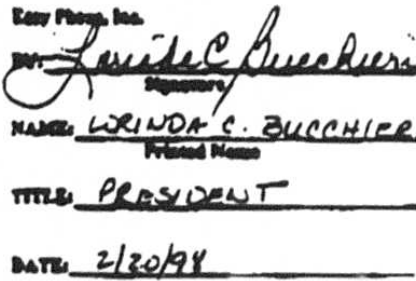 Easy Phone, Inc.
BY: Lorinda C Bucchieri
Signature
NAME: LORINDA C. BUCCHIER
Printed Name
TITLE: PRESIDENT
DATE: 2/20/98